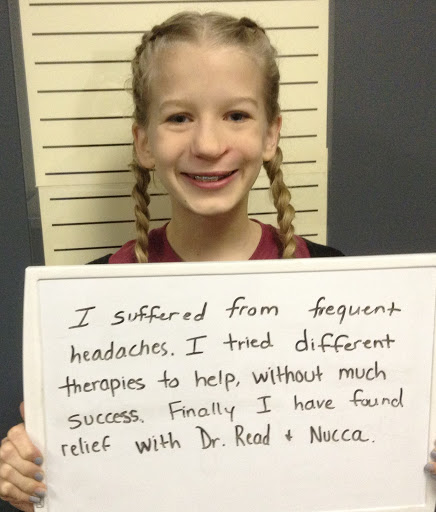 I suffered from frequent
headaches. I tried different
therapies to help, without much
success. Finally I have found
relief with Dr. Read & Nucca.